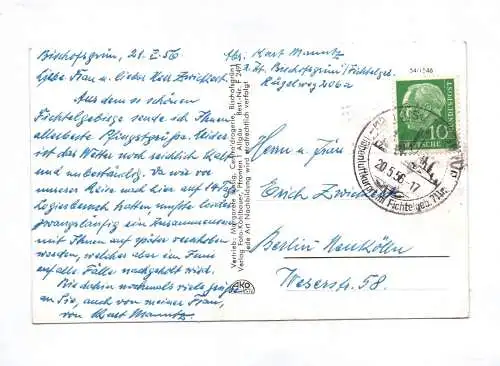 Bischofsgrün, 21. V. 56
Liebe Frau u. lieber Herr Zwickert.
Aus dem so schönen
Fichtelgebirge sende ich Ihnen
allerbeste Pfingstgrüße. Leider
ist das Wetter noch reichlich kalt
und unbeständig. Da wir vor
unserer Reise nach hier auf
Logierbesuch hatten, mußte leider
zwangsläufig ein Zusammensein
mit Ihnen auf später verschoben
werden, welches aber im Juni
auf alle Fälle nachgeholt wird.
Bis dahin nochmals viele Grüße
an Sie, auch von meiner Frau,
von Karl Mannitz.
Vertrieb: Margarete Centraldrogerie, Bischofsgrün
Verlag Foto-Kölbhauer, Pfronten i. Allgäu Best.-Nr. F 2471
Jede Art Nachbildung wird strafrechtlich verfolgt
AKO
Abs. Karl Mannitz
z. Zt. Bischofsgrün/Fichtelgeb.
Rügelweg 206a
54/1546
10
DEUTSCHE
20.5.56-17
im Fichtelgeb.
Herrn u. Frau
Erich Zwickert
Berlin Neukölln
Weserstr. 58.